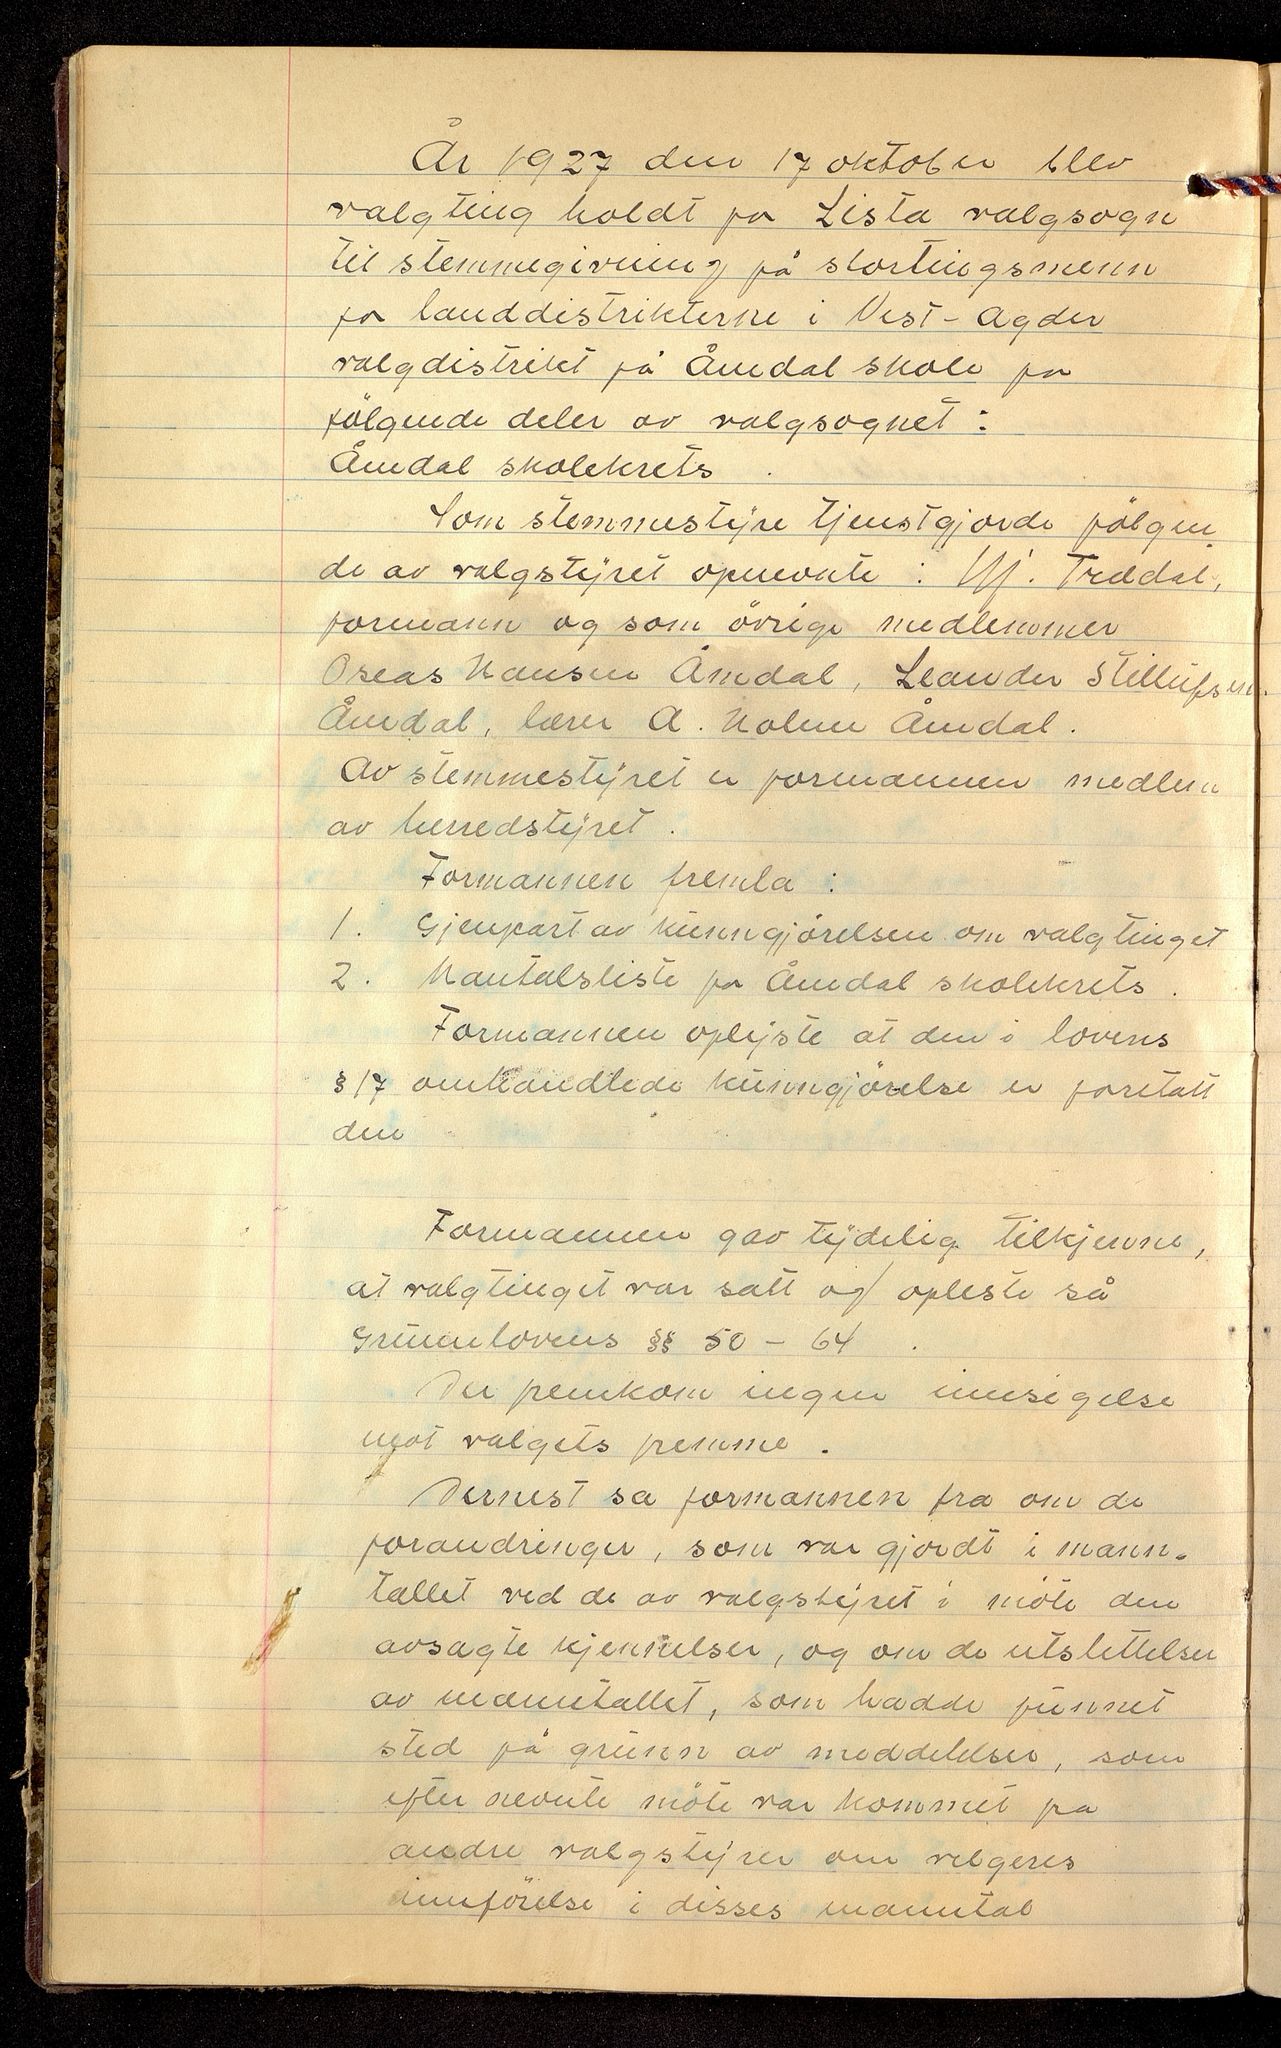 År 1927 den 17 oktober blev
valgting holdt for Lista valgsogn
til stemmegivning på stortingsmenn
for landdistrikterne i Vest-Agder
valgdistrikt på Åmdal skole for
følgende deler av valgsognet :
Åmdal skolekrets .
Som stemmestyre tjenstgjorde følgen
de av valgstyret opnevnte : Tredal,
formann og som øvrige medlemmer
Oseas Hansen Åmdal, Leander Stellufsen
Åmdal, lærer A. Holme Åmdal .
Av stemmestyret er formannen medlem
av herredstyret .
Formannen fremla :
1. Gjenpart av kunngjørelsen om valgtinget
2. Mantalsliste for Åmdal skolekrets .
Formannen oplyste at den i lovens
§ 17 omhandlede kunngjørelse er foretatt
den
Formannen gav tydelig tilkjenne,
at valgtinget var satt og opleste så
Grunnlovens §§ 50 - 64 .
Der fremkom ingen innsigelse
mot valgets fremme .
Dernest sa formannen fra om de
forandringer, som var gjordt i mann-
tallet ved de av valgstyret i møte den
avsagte kjennelser, og om de utslettelser
av manntallet, som hadde funnet
sted på grunn av meddelelser, som
efter nevnte møte var kommet fra
andre valgstyrer om velgeres
innførelse i disses manntal